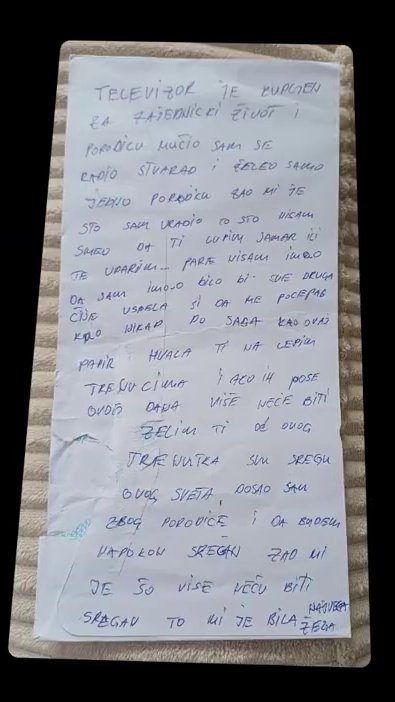 TELEVIZOR JE KUPLJEN
ZA ZAJEDNICKI ŽIVOT I
PORODICU MUČIO SAM SE
RADIO STVARAO I ŽELEO SAMO
JEDNU PORODICU ŽAO MI JE
STO SAM URADIO TO STO NISAM
SMEO DA TI LUPIM SAMAR ILI
TE UDARIM.. PARE NISAM IMALO
DA SAM IMALO BILO BI SVE DRUGA
ČIJE USPELA SI DA ME POCEPAŠ
KAO NIKAD DO SADA KAO OVAJ
PAPIR I HVALA TI NA LEPIM
TRENUCIMA I AKO IH POSE
OVOG DANA VIŠE NEĆE BITI
ŽELIM TI OD OVOG
TRENUTKA SVU SREĆU
OVOG SVETA, DOSAO SAM
ZBOG PORODICE I DA BUDEM
NAPOKON SREĆAN ŽAO MI
JE ŠO VISE NEĆU BITI
SREĆAN TO MI JE BILA NAJVEĆA
ŽELJA